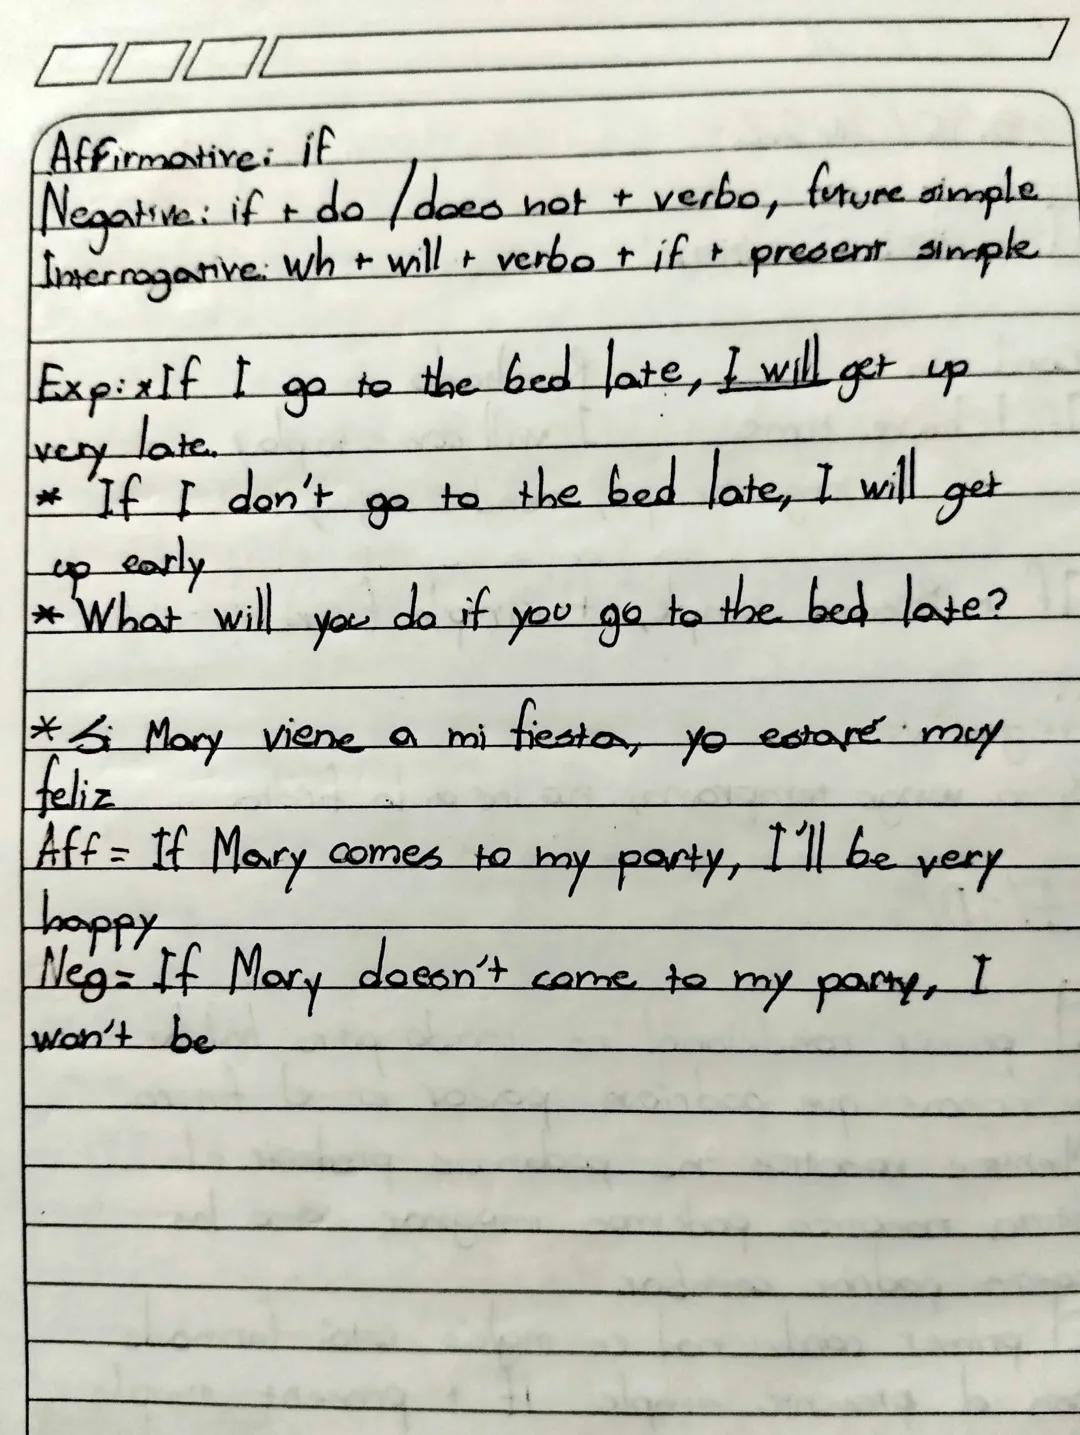 Affirmative: if
Negative: if + do / does not + verbo, future simple
Interrogative: Wh + will + verbo + if + present simple
Exp: *If I go to the bed late, I will get up
very late.
* If I don't go to the bed late, I will get
up early
* What will you do if you go to the bed late?
* Si Mary viene a mi fiesta, yo estaré muy
feliz
Aff = If Mary comes to my party, I'll be very
happy
Neg = If Mary doesn't come to my party, I
won't be